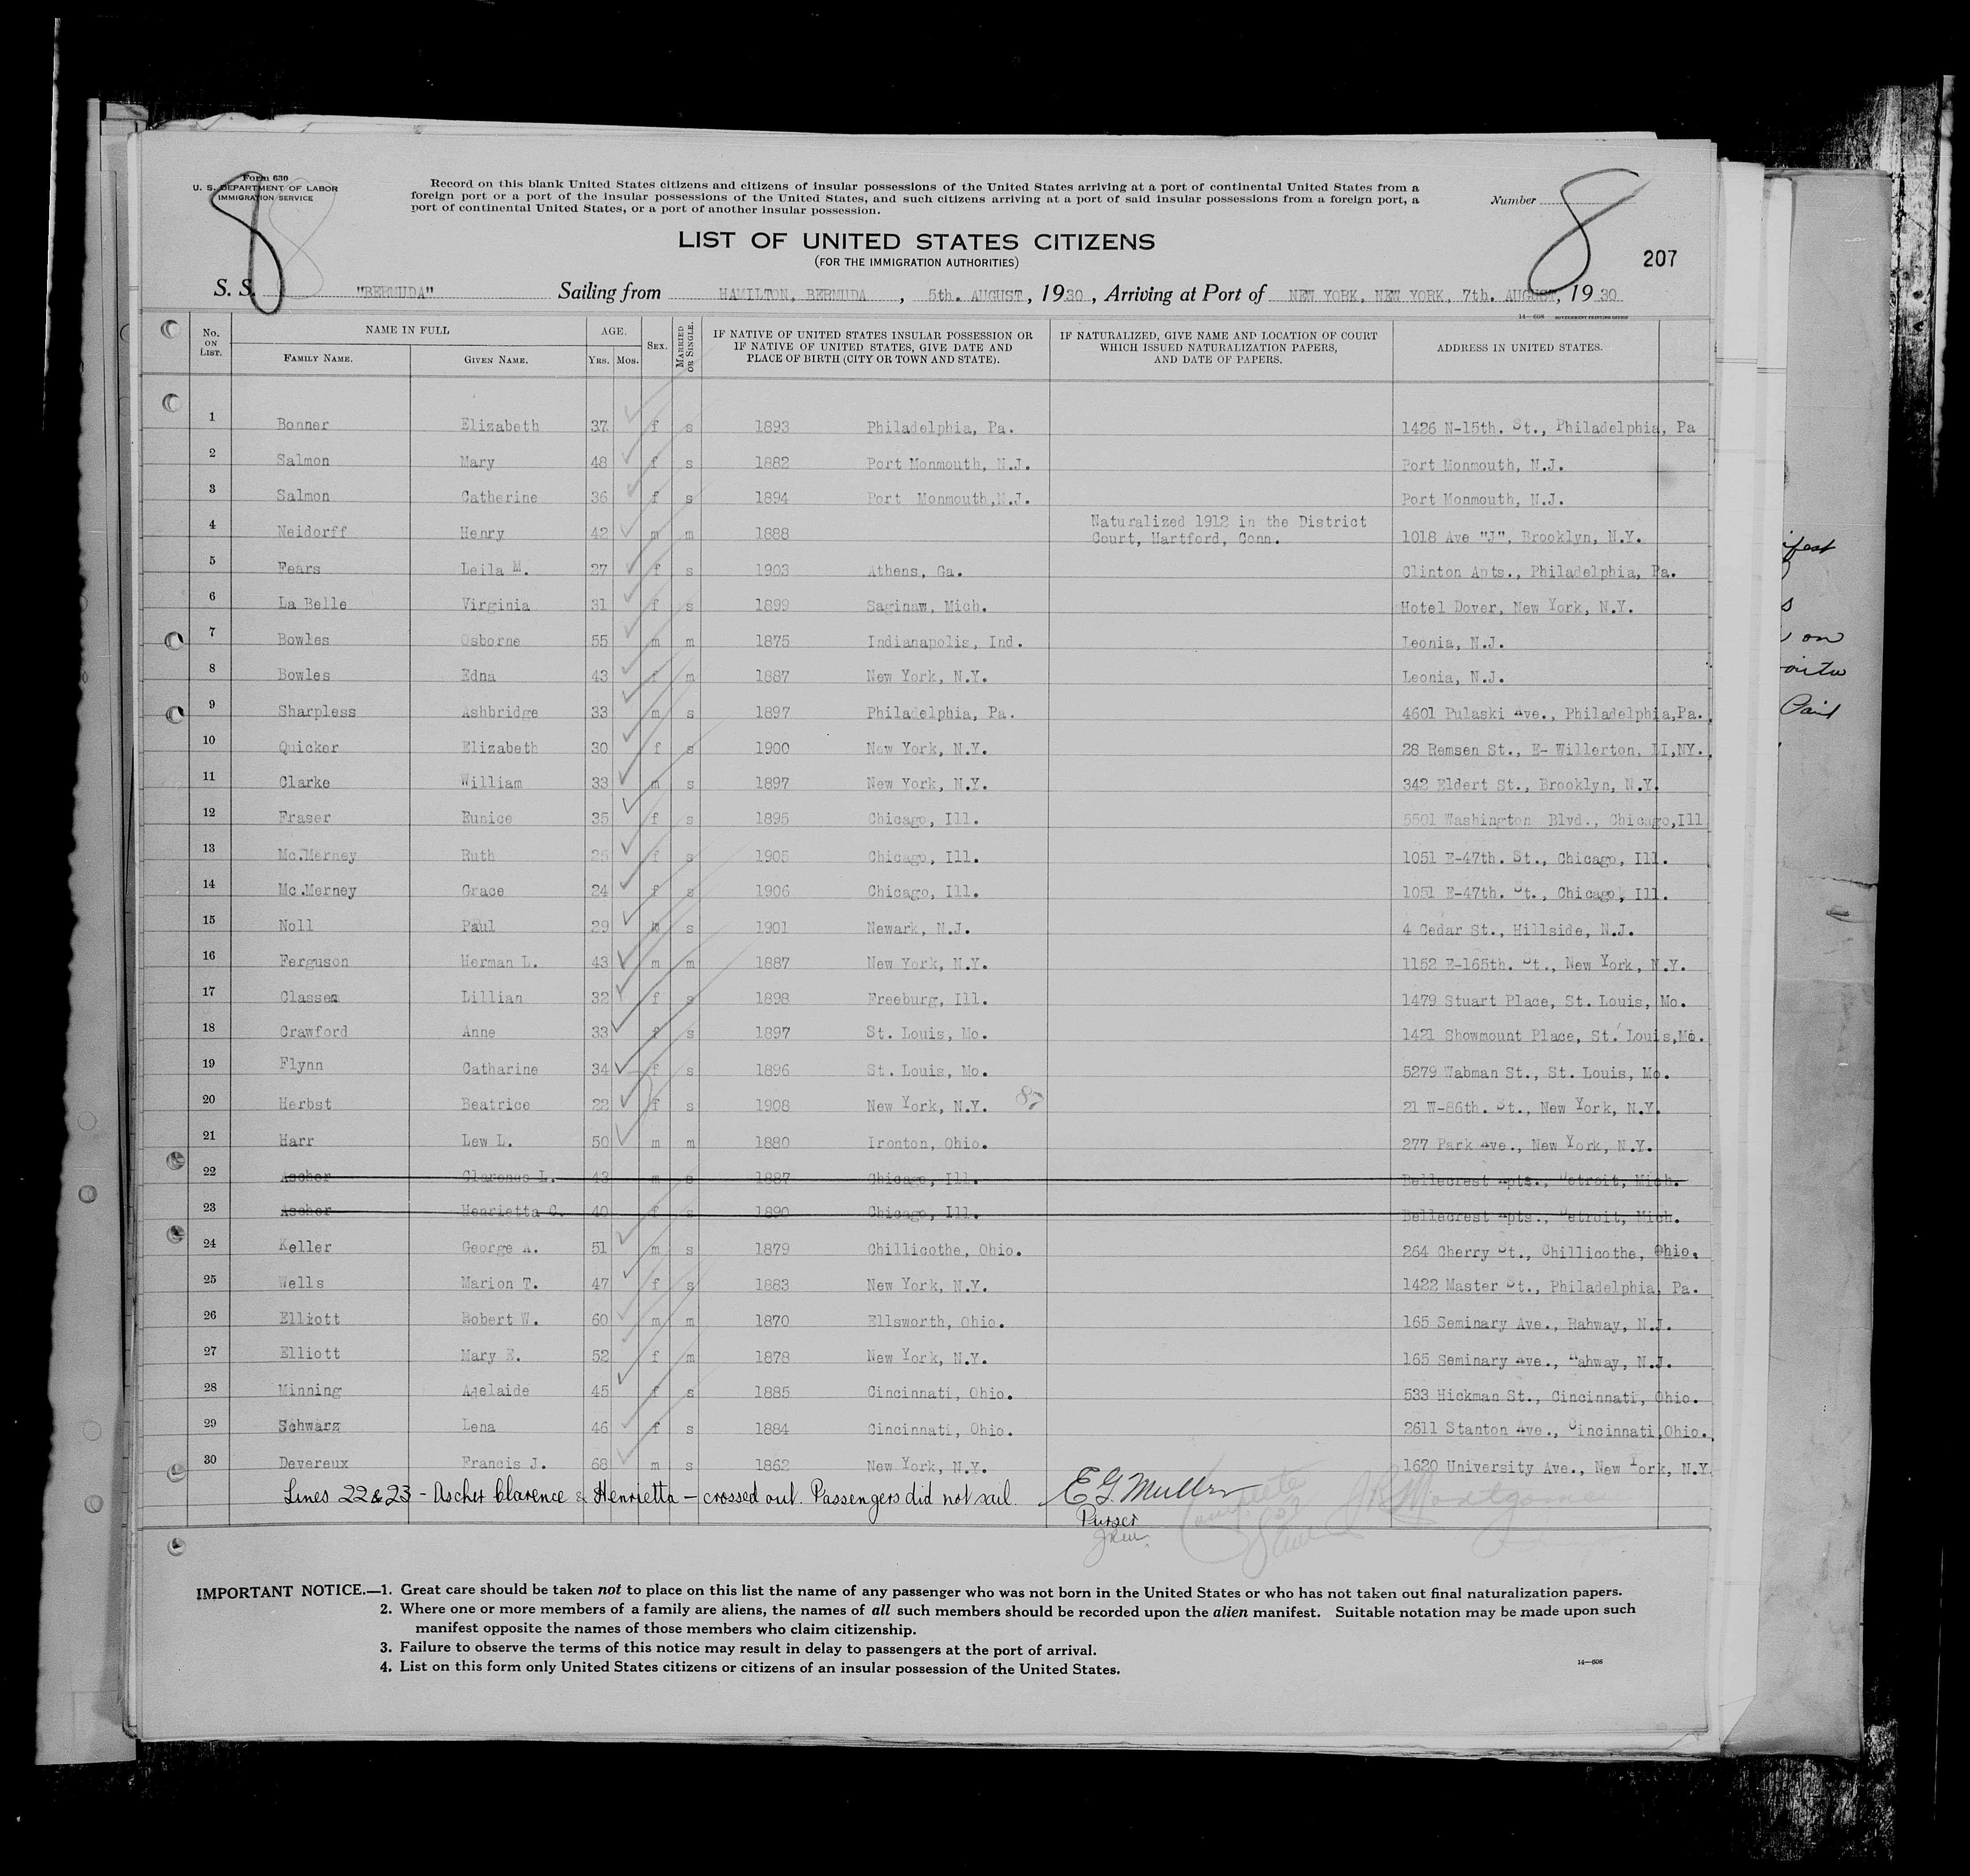 Form 630
U. S. DEPARTMENT OF LABOR
IMMIGRATION SERVICE
8
Record on this blank United States citizens and citizens of insular possessions of the United States arriving at a port of continental United States from a
foreign port or a port of the insular possessions of the United States, and such citizens arriving at a port of said insular possessions from a foreign port, a
port of continental United States, or a port of another insular possession.
Number 8
LIST OF UNITED STATES CITIZENS
(FOR THE IMMIGRATION AUTHORITIES)
207
S. S. "BERMUDA" Sailing from HAMILTON, BERMUDA, 5th. AUGUST, 1930, Arriving at Port of NEW YORK, NEW YORK, 7th. AUGUST, 1930
14—608 GOVERNMENT PRINTING OFFICE
No. ON LIST. NAME IN FULL AGE. SEX. MARRIED OR SINGLE. IF NATIVE OF UNITED STATES INSULAR POSSESSION OR IF NATIVE OF UNITED STATES, GIVE DATE AND PLACE OF BIRTH (CITY OR TOWN AND STATE). IF NATURALIZED, GIVE NAME AND LOCATION OF COURT WHICH ISSUED NATURALIZATION PAPERS, AND DATE OF PAPERS. ADDRESS IN UNITED STATES.
FAMILY NAME. GIVEN NAME. YRS. MOS.
1 Bonner Elizabeth 37 f s 1893 Philadelphia, Pa. 1426 N-15th. St., Philadelphia, Pa
2 Salmon Mary 48 f s 1882 Port Monmouth, N.J. Port Monmouth, N.J.
3 Salmon Catherine 36 f s 1894 Port Monmouth,N.J. Port Monmouth, N.J.
4 Neidorff Henry 42 m m 1888 Naturalized 1912 in the District Court, Hartford, Conn. 1018 Ave "J", Brooklyn, N.Y.
5 Fears Leila M. 27 f s 1903 Athens, Ga. Clinton Apts., Philadelphia, Pa.
6 La Belle Virginia 31 f s 1899 Saginaw, Mich. Hotel Dover, New York, N.Y.
7 Bowles Osborne 55 m m 1875 Indianapolis, Ind. Leonia, N.J.
8 Bowles Edna 43 f m 1887 New York, N.Y. Leonia, N.J.
9 Sharpless Ashbridge 33 m s 1897 Philadelphia, Pa. 4601 Pulaski Ave., Philadelphia,Pa.
10 Quicker Elizabeth 30 f s 1900 New York, N.Y. 28 Remsen St., E- Willerton, LI,NY.
11 Clarke William 33 m s 1897 New York, N.Y. 342 Eldert St., Brooklyn, N.Y.
12 Fraser Eunice 35 f s 1895 Chicago, Ill. 5501 Washington Blvd., Chicago,Ill
13 Mc.Merney Ruth 25 f s 1905 Chicago, Ill. 1051 E-47th. St., Chicago, Ill.
14 Mc.Merney Grace 24 f s 1906 Chicago, Ill. 1051 E-47th. St., Chicago, Ill.
15 Noll Paul 29 m s 1901 Newark, N.J. 4 Cedar St., Hillside, N.J.
16 Ferguson Herman L. 43 m m 1887 New York, N.Y. 1152 E-165th. St., New York, N.Y.
17 Classen Lillian 32 f s 1898 Freeburg, Ill. 1479 Stuart Place, St. Louis, Mo.
18 Crawford Anne 33 f s 1897 St. Louis, Mo. 1421 Showmount Place, St. Louis,Mo.
19 Flynn Catharine 34 f s 1896 St. Louis, Mo. 5279 Wabman St., St. Louis, Mo.
20 Herbst Beatrice 22 f s 1908 New York, N.Y. 21 W-86th. St., New York, N.Y.
21 Harr Lew L. 50 m m 1880 Ironton, Ohio. 277 Park Ave., New York, N.Y.
22 Ascher Clarence L. 43 m s 1887 Chicago, Ill. Bellecrest Apts., Detroit, Mich.
23 Ascher Henrietta C. 40 f s 1890 Chicago, Ill. Bellecrest Apts., Detroit, Mich.
24 Keller George A. 51 m s 1879 Chillicothe, Ohio. 264 Cherry St., Chillicothe, Ohio.
25 Wells Marion T. 47 f s 1883 New York, N.Y. 1422 Master St., Philadelphia, Pa.
26 Elliott Robert W. 60 m m 1870 Ellsworth, Ohio. 165 Seminary Ave., Rahway, N.J.
27 Elliott Mary E. 52 f m 1878 New York, N.Y. 165 Seminary Ave., Rahway, N.J.
28 Minning Adelaide 45 f s 1885 Cincinnati, Ohio. 533 Hickman St., Cincinnati, Ohio.
29 Schwarz Lena 46 f s 1884 Cincinnati, Ohio. 2611 Stanton Ave., Cincinnati,Ohio.
30 Devereux Francis J. 68 m s 1862 New York, N.Y. 1620 University Ave., New York, N.Y.
Lines 22 & 23 - Ascher Clarence & Henrietta - crossed out. Passengers did not sail. E G Muller
Purser
IMPORTANT NOTICE.—1. Great care should be taken not to place on this list the name of any passenger who was not born in the United States or who has not taken out final naturalization papers.
2. Where one or more members of a family are aliens, the names of all such members should be recorded upon the alien manifest. Suitable notation may be made upon such
manifest opposite the names of those members who claim citizenship.
3. Failure to observe the terms of this notice may result in delay to passengers at the port of arrival.
4. List on this form only United States citizens or citizens of an insular possession of the United States.
14—608